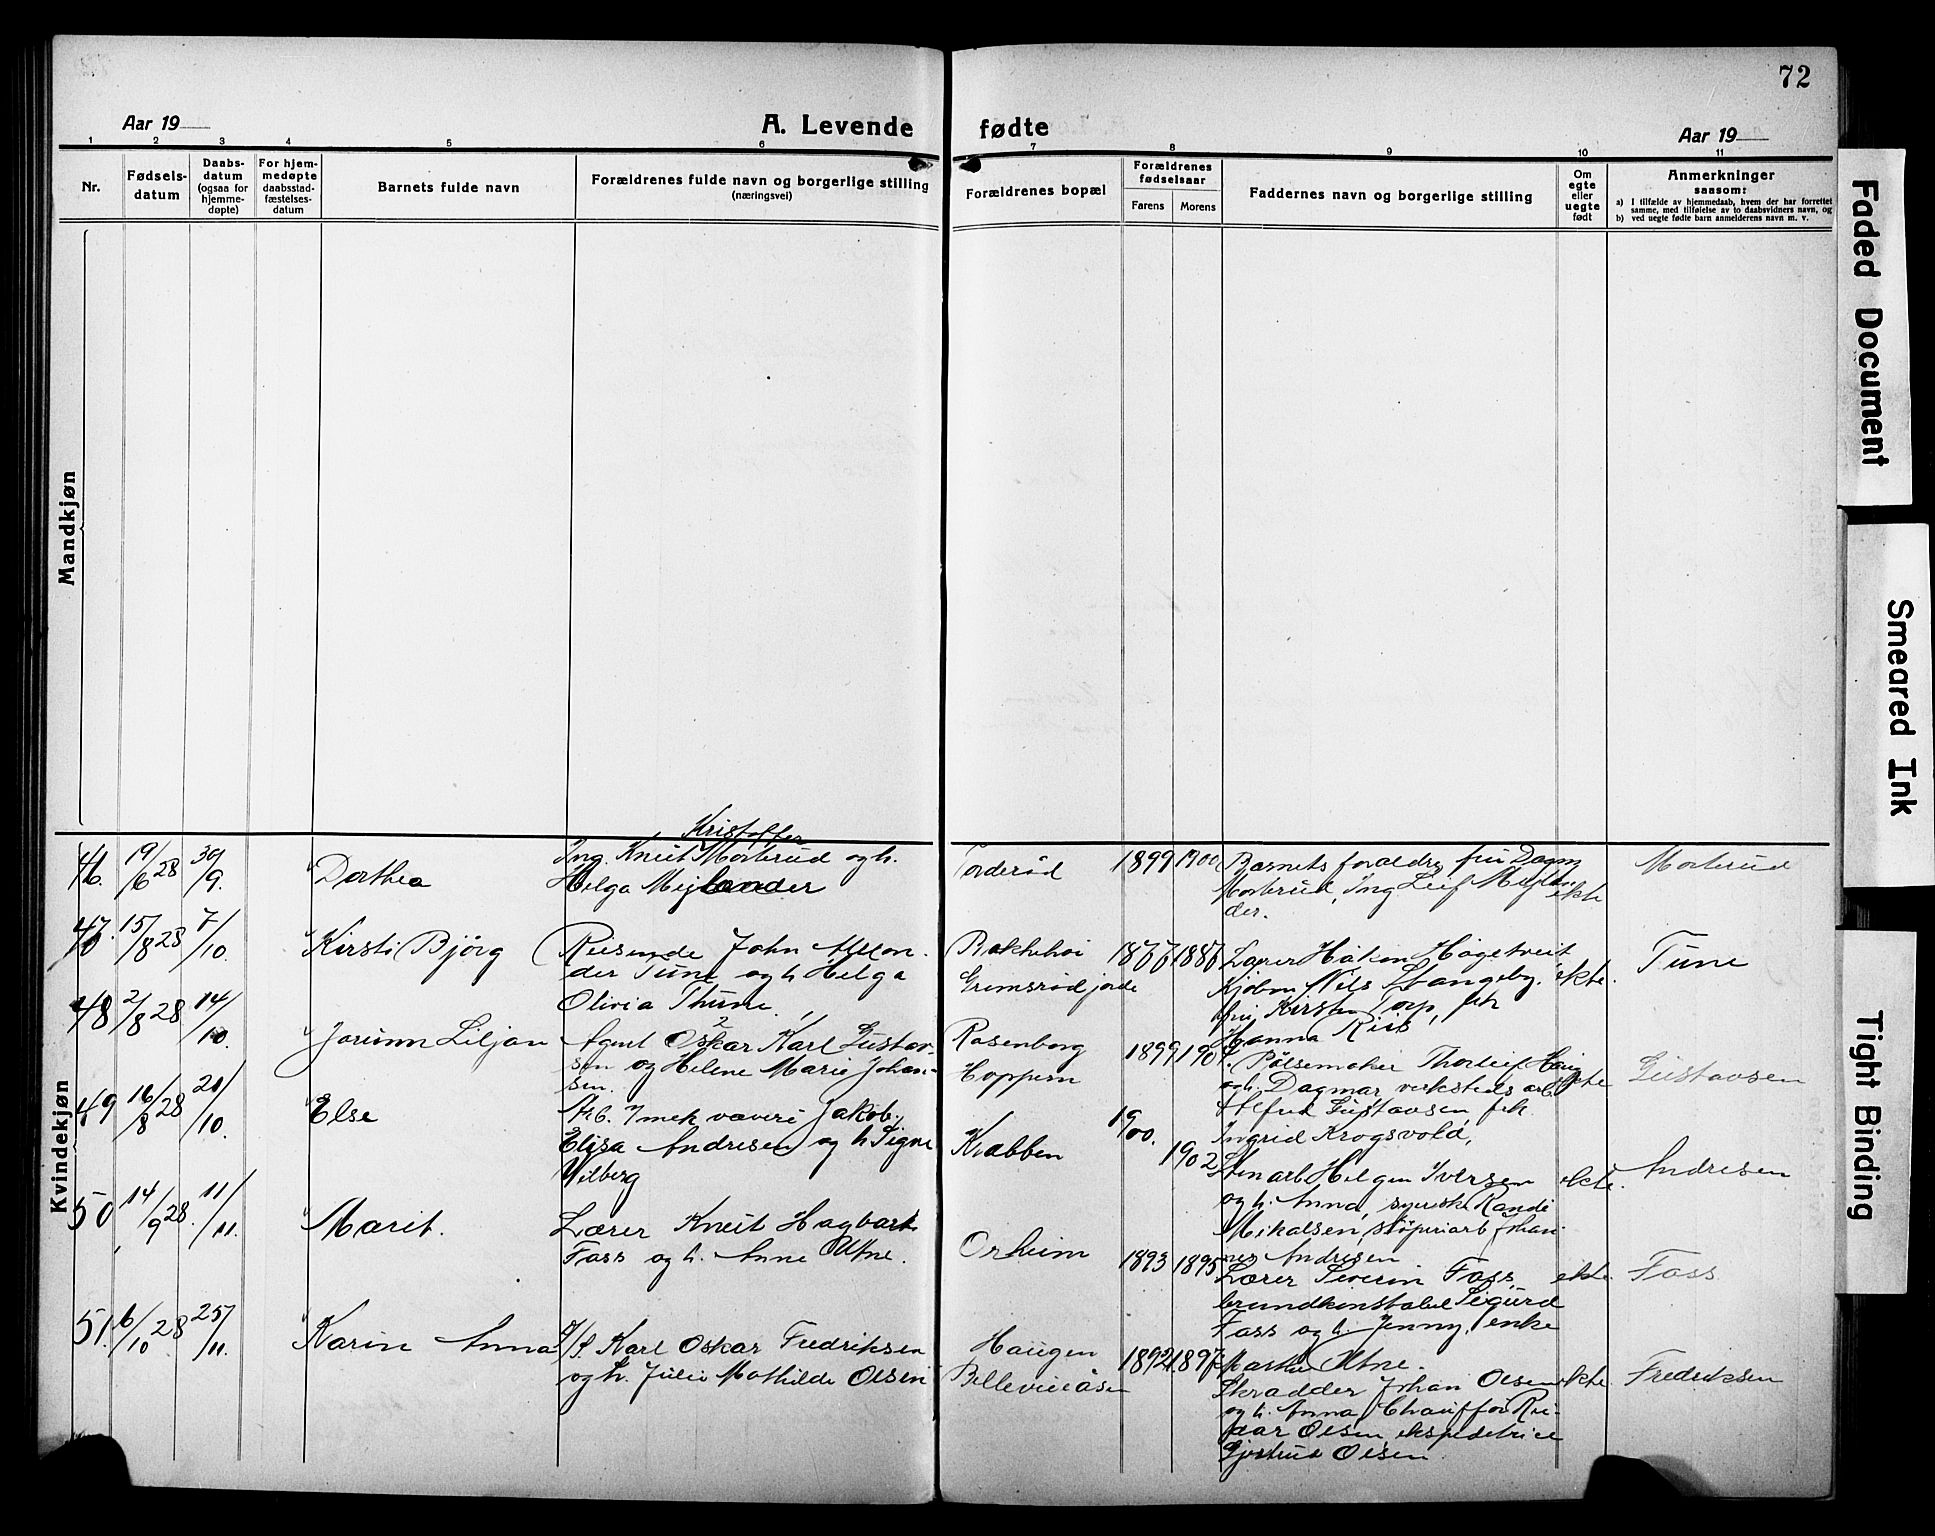 72
Aar 19
A. Levende fødte
Aar 19
1 2 3 4 5 6 7 8 9 10 11
Nr.
Fødsels-
datum
Daabs-
datum
(ogsaa for
hjemme-
døpte)
For hjem-
medøpte
daabsstad-
fæstelses-
datum
Barnets fulde navn
Forældrenes fulde navn og borgerlige stilling
(næringsvei)
Forældrenes bopæl
Forældrenes
fødselsaar
Farens
Morens
Faddernes navn og borgerlige stilling
Om
egte
eller
uegte
født
Anmerkninger
saasom:
a) I tilfælde av hjemmedaab, hvem der har forrettet
samme, med tilføielse av to daabsvidners navn, og
b) ved uegte fødte barn anmelderens navn m. v.
Mandkjøn
Kvindekjøn
46. 19/6 28 30/9.
Dorthea
Kristoffer
Ing. Knut Morterud og h.
Helga Mejlænder
Torderød
1899 1900
Barnets foreldre, fru Dagny
Morterud, Ing Leif Mejlæn-
der.
ekte
Morterud
47. 15/8 28 7/10.
Kirsti Bjørg
Reisende John
der Tune og h Helga
Olivia Thune
Bakkehøi
Grimsrødjorde
1877 1887
Lærer Håkon Høgetveit
Kjøbm Nils Stangeby,
fru Kirsten Torp, frk
Hanna Riis
ekte.
Tune
48 2/8 28 14/10.
Jorunn Liljan
Agent Oskar Karl Gustav-
sen og Helene Marie Johan-
sen.
Rosenborg
Hoppern
1899 1904
Pølsemaker Thorleif Haug
og h. Dagmar, verksteds arb.
Alfred Gustavsen, frk.
Ingrid Krogsvold,
ekte
Gustavsen
49 16/8 28 21/10.
Else
Arb. i mek væveri Jakob
Elisa Andresen og h Signe
Wilberg
Krabben
1900.
1902
Stenarb Helgen Iversen
og h. Anna, syerske Randi
Mikalsen, støperiarb Johan-
nes Andresen
ekte.
Andresen
50 14/9 28. 11/11.
Marit.
Lærer Knut Hagbart
Foss og h. Anne Utne.
Orheim
1893 1895
Lærer Severin Foss,
brandkonstabel Sigurd
Foss og h. Jenny, enke
Marthe Utne.
ekte.
Foss
51. 6/10 28 25/11.
Karin Anna
Karl Oskar Fredriksen
og h. Julie Mathilde Olsen
Haugen
Bellevueåsen
1892 1897
Skrædder Johan Olsen
og h. Anna, Chauffør Rei-
dar Olsen ekspeditrice
Gjertrud Olsen.
ekte
Fredriksen
Faded Document
Smeared Ink
Tight Binding